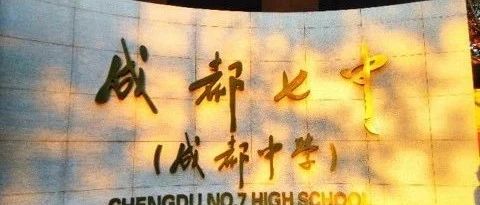 成都七中
(成都中学)
CHENGDU NO.7 HIGH SCHOOL